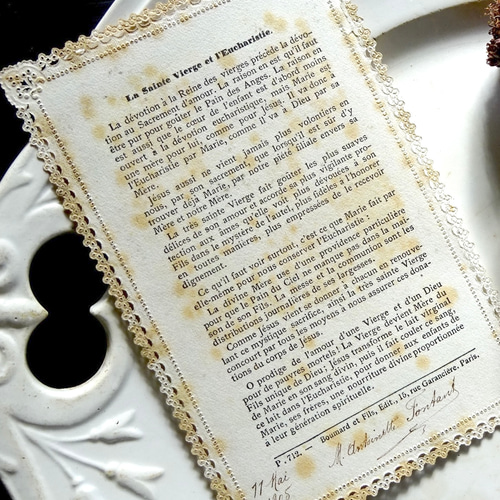 La Sainte Vierge et l'Eucharistie.
La dévotion à la Reine des vierges précède la dévo-
tion au Sacrement d'amour. La raison en est qu'il faut
être pur pour goûter le Pain des Anges. La raison en
est aussi que le cœur de l'enfant est d'abord moins
ouvert à la dévotion eucharistique, mais Marie est
une mère pour lui comme pour Jésus. Il va donc à
l'Eucharistie par Marie, comme il va à Dieu par sa
Mère.
Jésus aussi ne vient jamais plus volontiers en
nous, par son sacrement, que lorsqu'il est sûr d'y
trouver déjà Marie, par notre piété filiale envers sa
Mère et notre Mère.
La très sainte Vierge fait goûter les plus suaves
délices de son amour et accorde sa plus vigilante pro-
tection aux âmes qu'elle voit plus dévouées à son
Fils dans le mystère de l'autel, plus fidèles à l'honorer
en toutes manières, plus empressées de le recevoir
dignement.
Ce qu'il faut voir surtout, c'est ce que Marie fait par
elle-même pour nous conserver l'Eucharistie :
La divine Mère use d'une providence particulière
pour que le Pain du Ciel ne manque pas dans la mai-
son de son Fils. La messe et la communion sont les
distributions journalières de ses largesses.
Comme Jésus vient se donner à chacun en renouve-
lant ce mystique sacrifice, ainsi la très sainte Vierge
concourt par tous les moyens à nous assurer ces dona-
tions du corps de Jésus.
O prodige de l'amour d'une Vierge et d'un Dieu
pour de pauvres mortels! La Vierge devient Mère du
Fils unique de Dieu; Jésus transforme le lait virginal
de Marie en son sang divin, puis il fait couler ce sang,
ce lait dans l'Eucharistie, pour donner aux enfants de
Marie, ses frères, une nourriture divine proportionnée
à leur génération spirituelle.
P. 712. — Boumard et Fils, Edit., 15, rue Garancière, Paris.
11 Mai